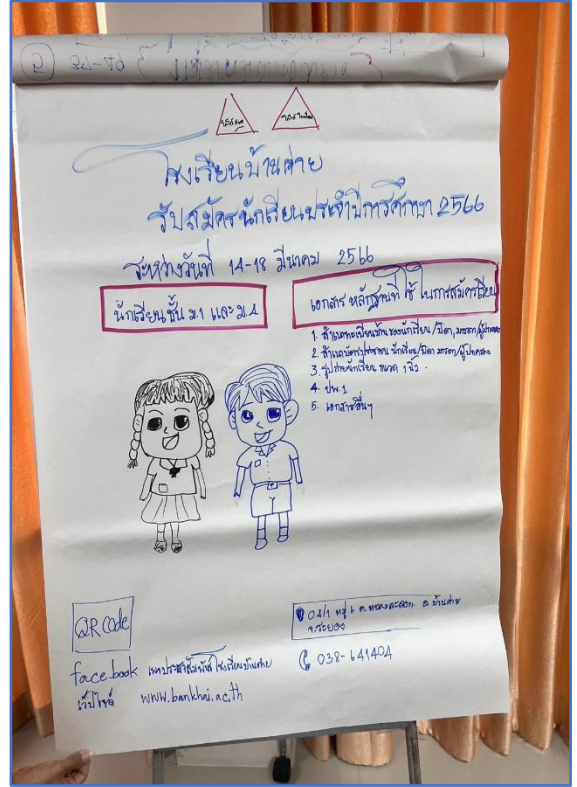 โรงเรียนบ้านค่าย
รับสมัครนักเรียนประจำปีการศึกษา 2566
ระหว่างวันที่ 14-18 มีนาคม 2566
นักเรียนชั้น ม.1 และ ม.4
เอกสาร หลักฐานที่ใช้ในการสมัครเรียน
1. สำเนาทะเบียนบ้านของนักเรียน/บิดา, มารดา/ผู้ปกครอง
2. สำเนาบัตรประชาชน นักเรียน/บิดา มารดา/ผู้ปกครอง
3. รูปถ่ายนักเรียน ขนาด 1 นิ้ว.
4. ปพ.1
5. เอกสารอื่นๆ
QR Code
facebook เพจประชาสัมพันธ์โรงเรียนบ้านค่าย
เว็ปไซต์ www.bankhai.ac.th
04/1 หมู่ 6 ต.หนองละลอก อ.บ้านค่าย
จ.ระยอง
038-641404